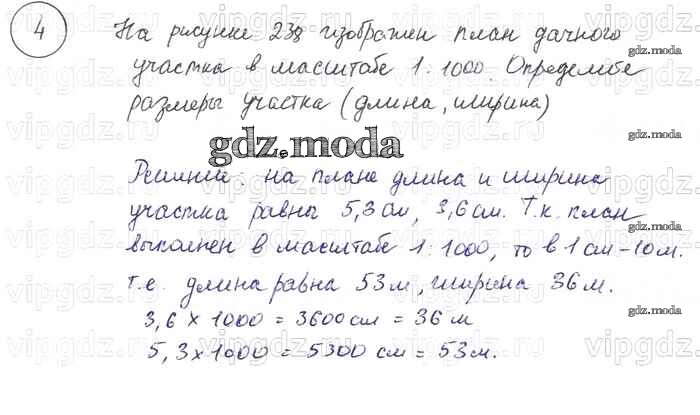 4 На рисунке 238 изображен план дачного
участка в масштабе 1:1000. Определите
размеры участка (длина, ширина)
gdz.moda
Решение: на плане длина и ширина
участка равны 5,3 см, 3,6 см. Т.к. план
выполнен в масштабе 1:1000, то в 1 см - 10 м.
т.е. длина равна 53 м, ширина 36 м.
3,6 х 1000 = 3600 см = 36 м
5,3 х 1000 = 5300 см = 53 м.